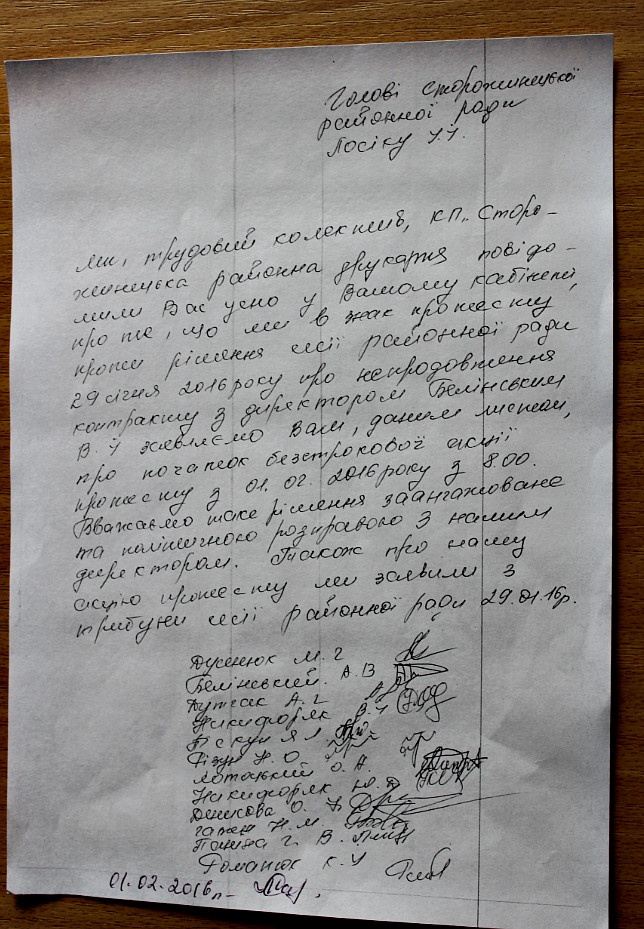 Голові Сторожинецької
районної ради
Лосіку І.І.
Ми, трудовий колектив, КП „Сторо-
жинецька районна друкарня повідо-
мили Вас усно у Вашому кабінеті
про те, що ми в знак протесту,
проти рішення сесії районної ради
29 січня 2016 року про непродовження
контракту з директором Белінським
В. І заявляємо Вам, даним листом,
про початок безстрокової акції
протесту з 01. 02. 2016 року з 8.00.
Вважаємо таке рішення заангажоване
та політичною розправою з нашим
директором. Також про нашу
акцію протесту ми заявили з
трибуни сесії районної ради 29.01.16р.
Дусенюк М. Г
Белінський. А. В
Бутчак А. Г
Никифоряк В. І
Пекун Л
Гізун Н. О
Лотоцький О. А.
Никифоряк Ю. Д
Денисова О.
Н. М
Паніна Г. В.
Романюк К. У
01.02.2016р.